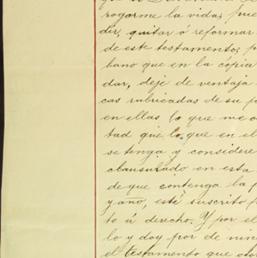 rogarme la vida, pue
dir, quitar ó reformar
de este testamento, p
bano que en la copia
dar, deje de ventaja
cas rubricadas de su p
en ellas lo que me o
tad que lo que en el
se tenga y considere
clausurado en esta
de que contenga la p
y año, esté suscrito p
to á derecho. Y por el
lo y doy por de nin
el testamento que oto